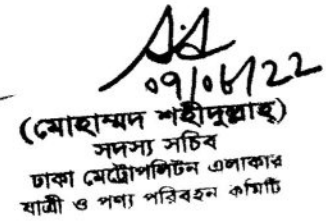 ০৭/০৮/২২
(মোহাম্মদ শহীদুল্লাহ্)
সদস্য সচিব
ঢাকা মেট্রোপলিটন এলাকার
যাত্রী ও পণ্য পরিবহন কমিটি